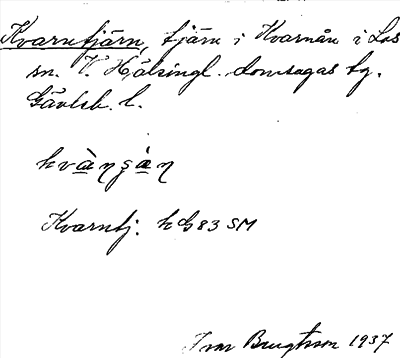 Kvarntjärn, tjärn i Kvarnån i Los
sn. V. Hälsingl. domsagas tg.
Gävleb. l.
kvàŋʂàŋ
Kvarntj. hG83 SM
Ivar Bengtsson 1937